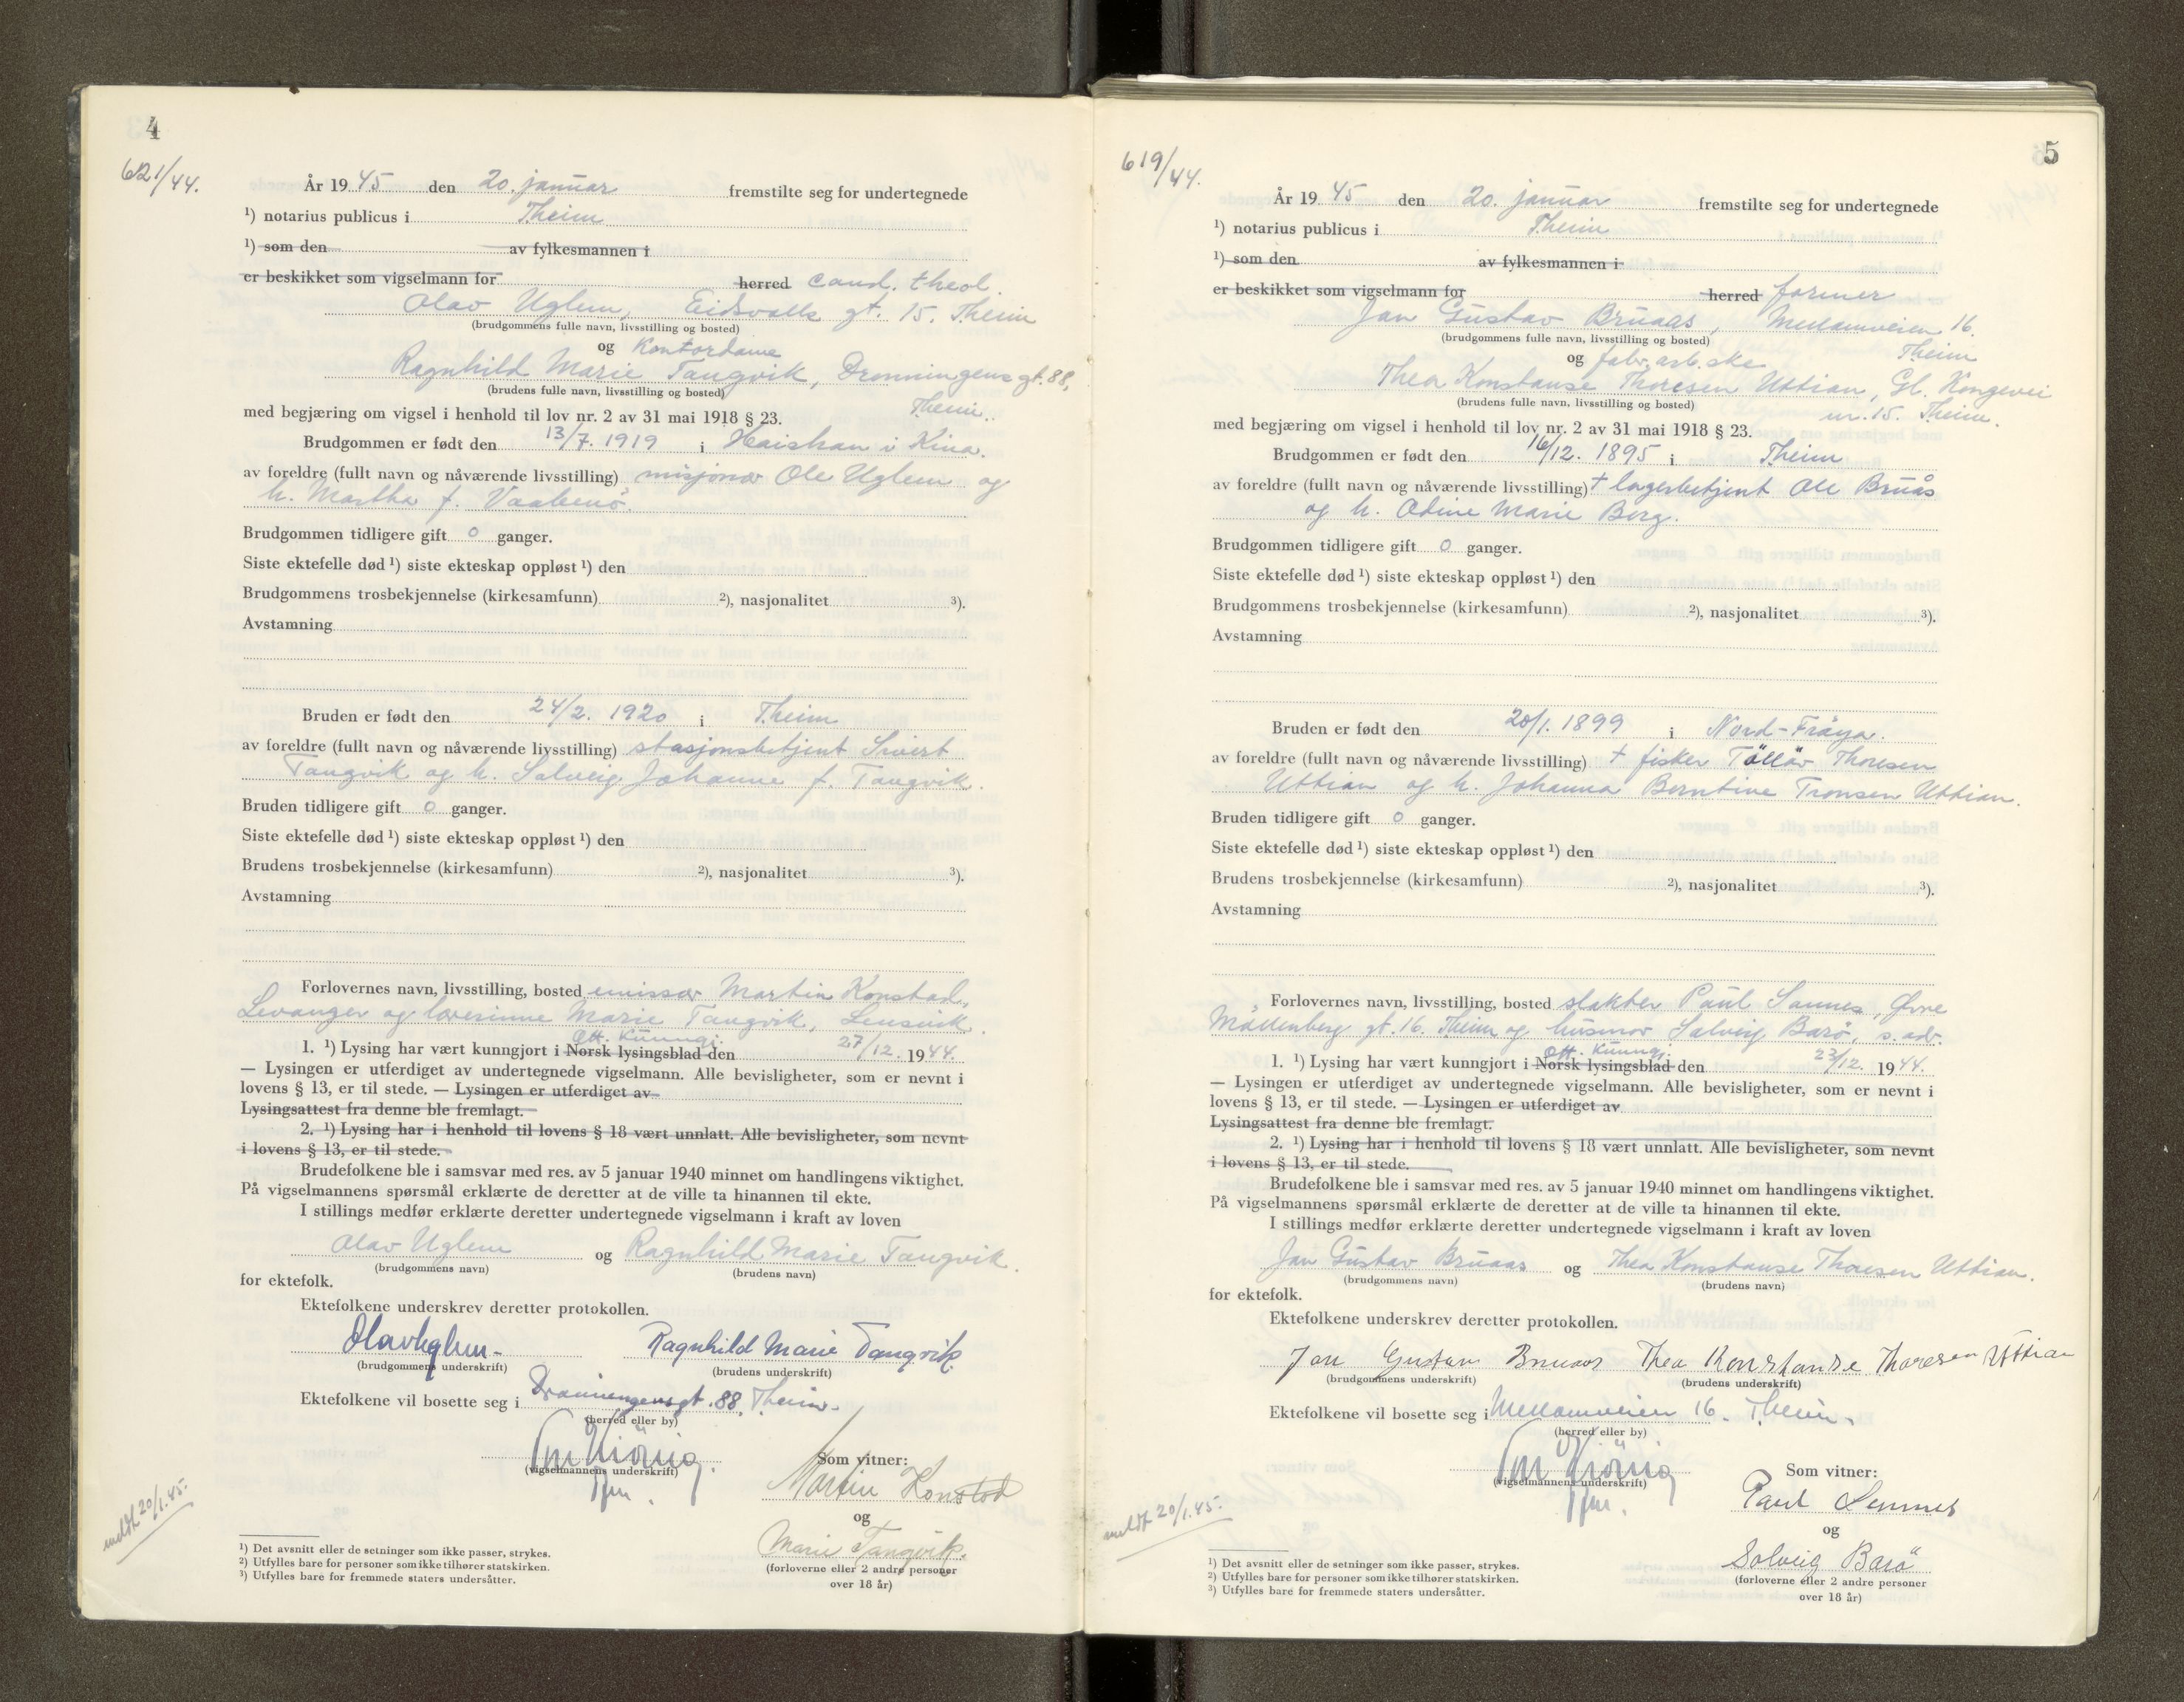 4
621/44.
År 1945 den 20. januar fremstilte seg for undertegnede
¹) notarius publicus i Theim
¹) som den av fylkesmannen i
er beskikket som vigselmann for herred cand. theol.
Olav Uglem, Eidsvolls gt. 15. Theim
(brudgommens fulle navn, livsstilling og bosted)
og Kontordame
Ragnhild Marie Tangvik, Dronningens gt. 88,
(brudens fulle navn, livsstilling og bosted)
Theim.
med begjæring om vigsel i henhold til lov nr. 2 av 31 mai 1918 § 23.
Brudgommen er født den 13/7. 1919 i Haishan i Kina.
av foreldre (fullt navn og nåværende livsstilling) misjonær Ole Uglem og
h. Martha f. Vaabenö.
Brudgommen tidligere gift 0 ganger.
Siste ektefelle død ¹) siste ekteskap oppløst ¹) den
Brudgommens trosbekjennelse (kirkesamfunn) ²), nasjonalitet ³).
Avstamning
Bruden er født den 24/2. 1920 i Theim
av foreldre (fullt navn og nåværende livsstilling) stasjonsbetjent Sivert
Tangvik og h. Solveig Johanne f. Tangvik.
Bruden tidligere gift 0 ganger.
Siste ektefelle død ¹) siste ekteskap oppløst ¹) den
Brudens trosbekjennelse (kirkesamfunn) ²), nasjonalitet ³).
Avstamning
Forlovernes navn, livsstilling, bosted emissær Martin Konstad,
Levanger og lærerinne Marie Tangvik, Lensvik.
off. kunngj.
1. ¹) Lysing har vært kunngjort i Norsk lysingsblad den 27/12. 1944.
— Lysingen er utferdiget av undertegnede vigselmann. Alle bevisligheter, som er nevnt i
lovens § 13, er til stede. — Lysingen er utferdiget av
Lysingsattest fra denne ble fremlagt.
2. ¹) Lysing har i henhold til lovens § 18 vært unnlatt. Alle bevisligheter, som nevnt
i lovens § 13, er til stede.
Brudefolkene ble i samsvar med res. av 5 januar 1940 minnet om handlingens viktighet.
På vigselmannens spørsmål erklærte de deretter at de ville ta hinannen til ekte.
I stillings medfør erklærte deretter undertegnede vigselmann i kraft av loven
Olav Uglem og Ragnhild Marie Tangvik.
(brudgommens navn) (brudens navn)
for ektefolk.
Ektefolkene underskrev deretter protokollen.
Olav Uglem Ragnhild Marie Tangvik.
(brudgommens underskrift) (brudens underskrift)
Ektefolkene vil bosette seg i Dronningensgt. 88, Theim.
(herred eller by)
(vigselmannens underskrift)
Som vitner:
Martin Konstad
og
Marie Tangvik.
(forloverne eller 2 andre personer
over 18 år)
meldt 20/1.45.
¹) Det avsnitt eller de setninger som ikke passer, strykes.
²) Utfylles bare for personer som ikke tilhører statskirken.
³) Utfylles bare for fremmede staters undersåtter.
5
619/44.
År 1945 den 20. januar fremstilte seg for undertegnede
¹) notarius publicus i Theim
¹) som den av fylkesmannen i
er beskikket som vigselmann for herred former
Jan Gustav Bruaas, Mellomveien 16.
(brudgommens fulle navn, livsstilling og bosted)
Theim
og fabr.arb.ske
Thea Konstanse Thoresen Uttian, Gl. Kongevei
(brudens fulle navn, livsstilling og bosted)
nr. 15. Theim.
med begjæring om vigsel i henhold til lov nr. 2 av 31 mai 1918 § 23.
Brudgommen er født den 16/12. 1895 i Theim
av foreldre (fullt navn og nåværende livsstilling) † lagerbetjent Ole Bruås
og h. Adine Marie Berg.
Brudgommen tidligere gift 0 ganger.
Siste ektefelle død ¹) siste ekteskap oppløst ¹) den
Brudgommens trosbekjennelse (kirkesamfunn) ²), nasjonalitet ³).
Avstamning
Bruden er født den 20/1. 1899 i Nord-Fröya.
av foreldre (fullt navn og nåværende livsstilling) † fisker Tolløv Thoresen
Uttian og h. Johanna Berntine Tronsen Uttian.
Bruden tidligere gift 0 ganger.
Siste ektefelle død ¹) siste ekteskap oppløst ¹) den
Brudens trosbekjennelse (kirkesamfunn) ²), nasjonalitet ³).
Avstamning
Forlovernes navn, livsstilling, bosted slakter Paul Sannes, Øvre
Möllenberg gt. 16. Theim og husmor Solveig Barö, s. adr.
off. kunngj.
1. ¹) Lysing har vært kunngjort i Norsk lysingsblad den 23/12. 1944.
— Lysingen er utferdiget av undertegnede vigselmann. Alle bevisligheter, som er nevnt i
lovens § 13, er til stede. — Lysingen er utferdiget av
Lysingsattest fra denne ble fremlagt.
2. ¹) Lysing har i henhold til lovens § 18 vært unnlatt. Alle bevisligheter, som nevnt
i lovens § 13, er til stede.
Brudefolkene ble i samsvar med res. av 5 januar 1940 minnet om handlingens viktighet.
På vigselmannens spørsmål erklærte de deretter at de ville ta hinannen til ekte.
I stillings medfør erklærte deretter undertegnede vigselmann i kraft av loven
Jan Gustav Bruaas og Thea Konstanse Thoresen Uttian.
(brudgommens navn) (brudens navn)
for ektefolk.
Ektefolkene underskrev deretter protokollen.
Jan Gustav Bruaas Thea Konstanse Thoresen Uttian
(brudgommens underskrift) (brudens underskrift)
Ektefolkene vil bosette seg i Mellomveien 16. Theim.
(herred eller by)
(vigselmannens underskrift)
Som vitner:
Paul Sannes
og
Solveig Barö
(forloverne eller 2 andre personer
over 18 år)
meldt 20/1.45.
¹) Det avsnitt eller de setninger som ikke passer, strykes.
²) Utfylles bare for personer som ikke tilhører statskirken.
³) Utfylles bare for fremmede staters undersåtter.